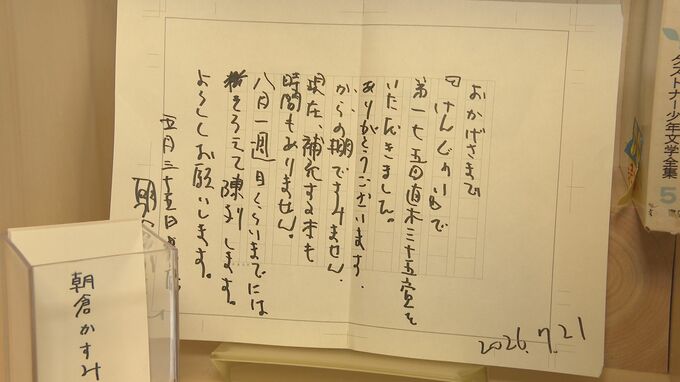 ストナー少年文学全集 5
おかげさまで
で
第一七五回直木三十五賞を
いただきました。
ありがとうございます。
からの棚ですみません、
現在、補充する本も
時間もありません。
八月一週目くらいまでには
そろえて陳列します。
よろしくお願いします。
五月三十五日
2026.7.21
朝倉かすみ